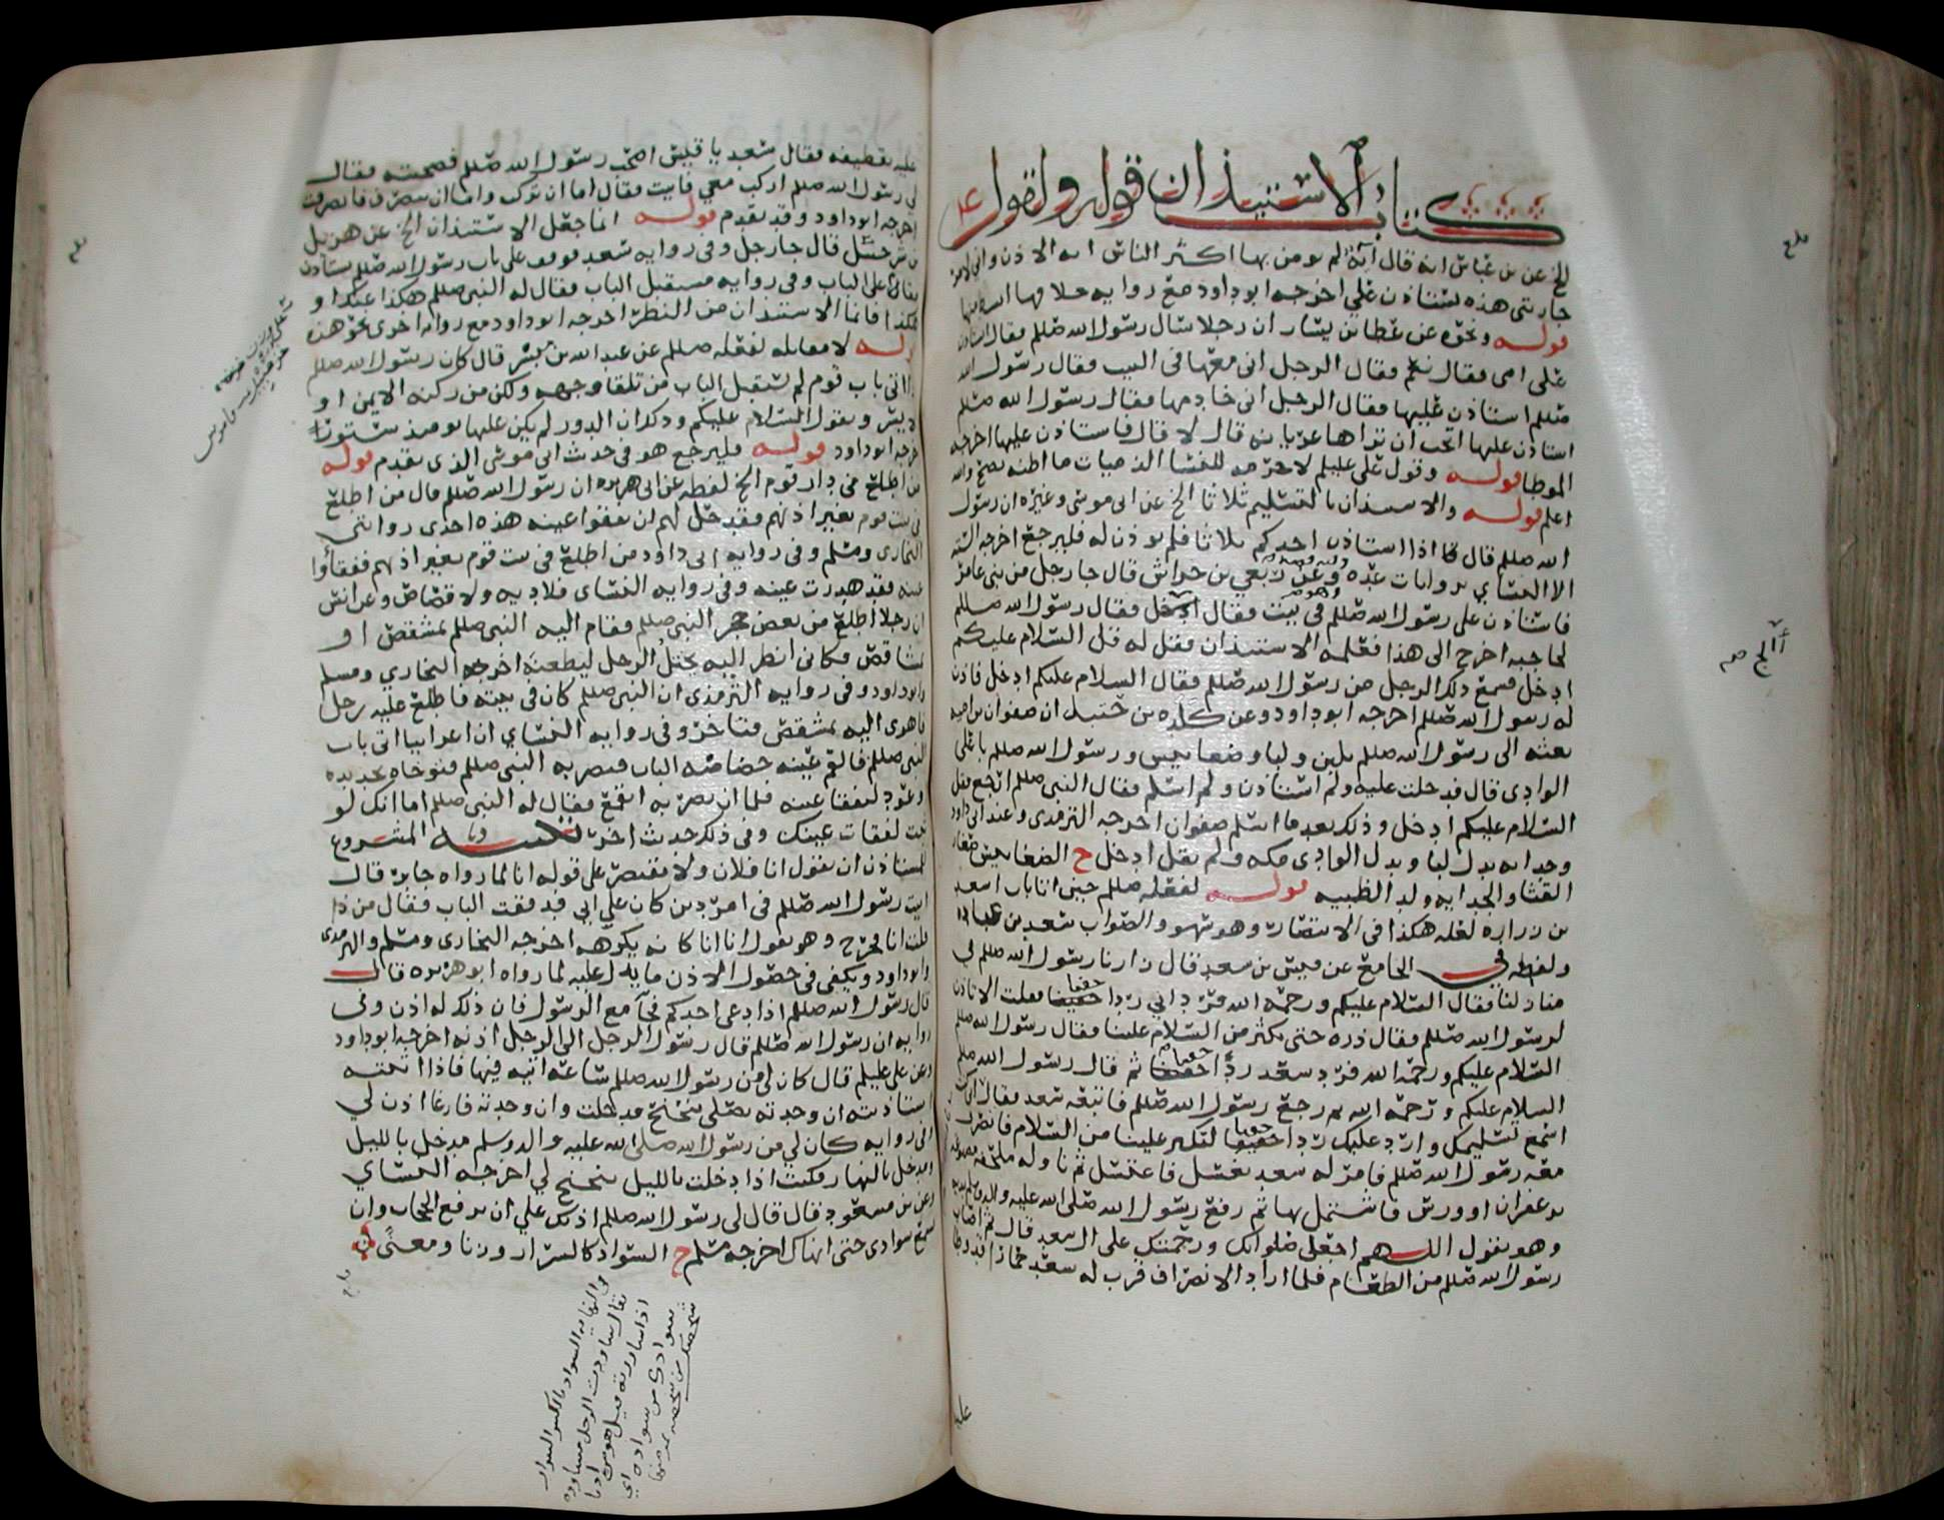 كتاب الاستيذان قوله ولقوله
الخ عن بن عباس انه قال آية لم يومن بها اكثر الناس ايه الاذن واني لامر
جاريتي هذه تستاذن علي اخرجه ابو داود مع روايه
قوله ونحوه عن عطا بن يسار ان رجلا سال رسول الله صللم فقال استاذن
على امي فقال نعم فقال الرجل اني معها في البيت فقال رسول الله
صللم استاذن عليها فقال الرجل اني خادمها فقال رسول الله صللم
استاذن عليها اتحب ان تراها عريانه قال لا قال فاستاذن عليها اخرجه
الموطا قوله وقول علي عليلم
اعلم قوله والاستيذان بالتسليم ثلاثا الخ عن ابي موسى وغيره ان رسول
الله صللم قال اذا استاذن احدكم ثلاثا فلم يوذن له فليرجع اخرجه الستة
الا النسائي بروايات عده وعن ربعي بن حراش قال جا رجل من بني عامر
فاستاذن على رسول الله صللم وهو في بيت فقال ادخل فقال رسول الله صللم
لخاجبه اخرج الى هذا فعلمه الاستيذان فقل له قل السلام عليكم
ادخل فسمع ذلك الرجل من رسول الله صللم فقال السلام عليكم ادخل فاذن
له رسول الله صللم اخرجه ابو داود وعن كلدة بن حنبل ان صفوان بن اميه
بعثه الى رسول الله صللم بلبن ولبا وضغابيس ورسول الله صللم باعلى
الوادي قال فدخلت عليه ولم استاذن ولم اسلم فقال النبي صللم ارجع فقل
السلام عليكم ادخل وذلك بعد ما اسلم صفوان اخرجه الترمذي وعند ابي داود
وجدايه بدل لبا وبدل الوادي مكه ولم يقل ادخل ح الضغابيس صغار
القثا والجدايه ولد الظبيه قوله لفعله صللم حين اتا باب اسعد
بن زراره لعله هكذا في الانتصار وهو سهو والصواب سعد بن عباده
ولفظه في الجامع عن قيس بن سعد قال زارنا رسول الله صللم في
منزلنا فقال السلام عليكم ورحمة الله فرد ابي ردا خفيفا فقلت الا تاذن
لرسول الله صللم فقال ذره حتى يكثر من السلام علينا فقال رسول الله صللم
السلام عليكم ورحمة الله فرد سعد ردا خفيفا ثم قال رسول الله صللم
السلام عليكم ورحمة الله ثم رجع رسول الله صللم فاتبعه سعد فقال اني كنت
اسمع تسليمك وارد عليك ردا خفيفا لتكثر علينا من السلام فانصرف
معه رسول الله صللم فامر له سعد بغسل فاغتسل ثم ناوله ملحفه مصبوغه
بزعفران او ورس فاشتمل بها ثم رفع رسول الله صلى الله عليه واله وسلم يديه
وهو يقول اللهم اجعل صلواتك ورحمتك على ال سعد قال ثم اصاب
رسول الله صللم من الطعام فلما اراد الانصراف قرب له سعد حمارا قد وطا
عليه
عليه بقطيفه فقال سعد يا قيس اصحب رسول الله صللم فصحبته فقال
لي رسول الله صللم اركب معي فابيت فقال اما ان تركب واما ان تنصرف فانصرفت
اخرجه ابو داود وقد تقدم قوله انما جعل الاستيذان الخ عن هزيل
بن شرحبيل قال جا رجل وفي روايه سعد فوقف على باب رسول الله صللم يستاذن
فقام على الباب وفي روايه مستقبل الباب فقال له النبي صللم هكذا عنك او
هكذا فانما الاستيذان من النظر اخرجه ابو داود مع روايه اخرى نحو هذه
قوله لا مقابله لفعله صللم عن عبد الله بن بسر قال كان رسول الله صللم
اذا اتى باب قوم لم يستقبل الباب من تلقا وجهه ولكن من ركنه الايمن او
الايسر ويقول السلام عليكم وذلك ان الدور لم يكن عليها يومئذ ستور
اخرجه ابو داود قوله فليرجع هو في حديث ابي موسى الذي تقدم قوله
من اطلع في دار قوم الخ لفظه عن ابي هريره ان رسول الله صللم قال من اطلع
في بيت قوم بغير اذنهم فقد حل لهم ان يفقوا عينه هذه احدى روايتي
البخاري ومسلم وفي روايه ابي داود من اطلع في بيت قوم بغير اذنهم ففقأوا
عينه فقد هدرت عينه وفي روايه النسائي فلا ديه ولا قصاص وعن انس
ان رجلا اطلع من بعض حجر النبي صللم فقام اليه النبي صللم بمشقص او
مشاقص فكاني انظر اليه يختل الرجل ليطعنه اخرجه البخاري ومسلم
وابو داود وفي روايه الترمذي ان النبي صللم كان في بيته فاطلع عليه رجل
فاهوى اليه بمشقص فتاخر وفي روايه النسائي ان اعرابيا اتى باب
النبي صللم فالقم عينه خصاصة الباب فبصر به النبي صللم فتوخاه بحديده
او عود ليفقا عينه فلما ان بصر به انقمع فقال له النبي صللم اما انك لو
ثبت لفقات عينك وفي ذلك حديث اخر تنبيه المشروع
للمستاذن ان يقول انا فلان ولا يقتصر على قوله انا لما رواه جابر قال
اتيت رسول الله صللم في امر دين كان على ابي فدققت الباب فقال من ذا
فقلت انا فخرج وهو يقول انا انا كانه يكرهه اخرجه البخاري ومسلم والترمذي
وابو داود ويكفي في حصول الاذن ما يدل عليه لما رواه ابو هريره قال
قال رسول الله صللم اذا دعي احدكم فجآ مع الرسول فان ذلك له اذن وفي
روايه ان رسول الله صللم قال رسول الرجل الى الرجل اذنه اخرجه ابو داود
وعن علي عليلم قال كان لي من رسول الله صللم ساعة اتيه فيها فاذا اتيته
استاذنته ان وجدته يصلي تنحنح فدخلت وان وجدته فارغا اذن لي
وفي روايه كان لي من رسول الله صلى الله عليه واله وسلم مدخل بالليل
ومدخل بالنهار فكنت اذا دخلت بالليل تنحنح لي اخرجه النسائي
وعن بن مسعود قال قال لي رسول الله صللم اذنك علي ان ترفع الحجاب وان
تسمع سوادي حتى انهاك اخرجه مسلم ح السواد كالسرار وزنا ومعنى